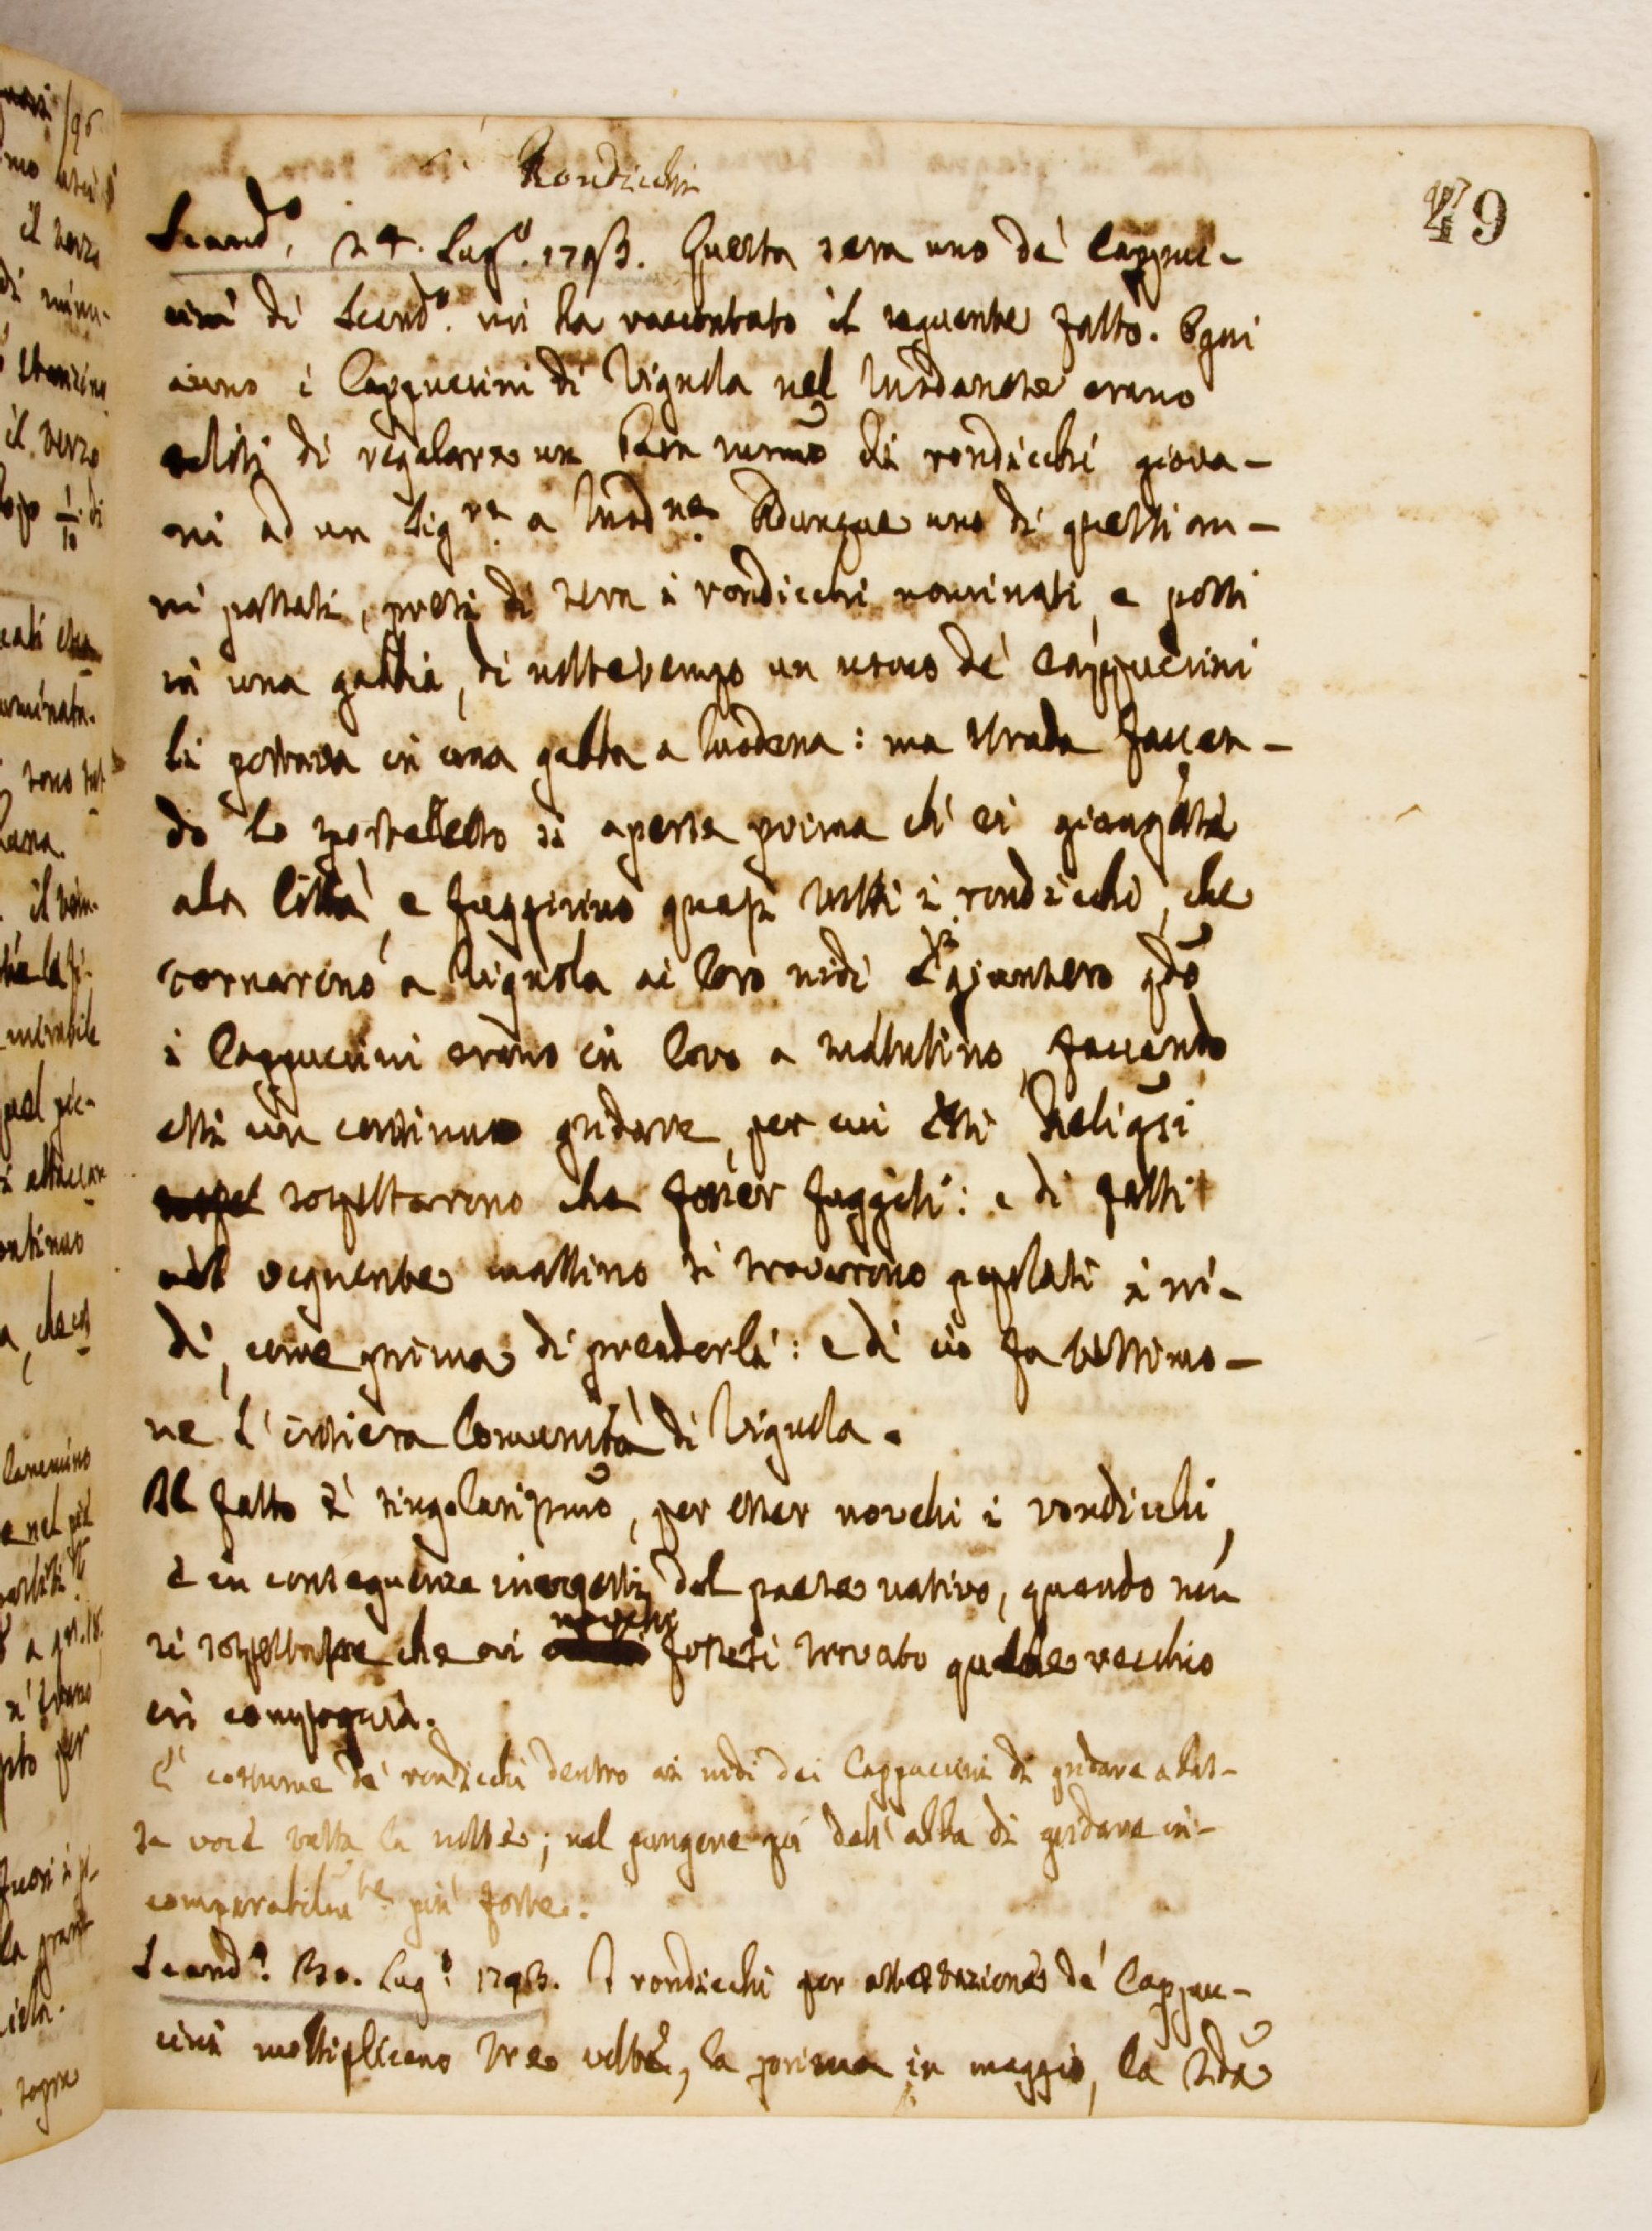 Rondicchi
49
Scand.º 24. Lug.º 1793. Questa sera uno de' Cappuc-
cini di Scand.º mi ha raccontato il seguente fatto. Ogni
anno i Cappuccini di Vignola nel Modanese erano
soliti di regalare un buon numº di rondicchi giova-
ni ad un Sig.re a Mod.na. Adunque uno di questi an-
ni passati, presi di sera i rondicchi nominati, e posti
in una gabbia, di nottetempo un uomo de' Cappuccini
li portava in una gabbia a Modena: ma strada facen-
do lo sportelletto si aperse prima ch' ei giungesse
ala Città, e fuggirono quasi tutti i rondicchi, che
tornarono a Vignola ai loro nidi e vi giunsero qdo
i Cappuccini erano in Coro a mattutino, facendo
essi un continuo gridare, per cui essi Religosi
sospettarono che fosser fuggiti: e di fatti
nel seguente mattino si trovarono popolati i ni-
di, come prima di prenderli: e di ciò fa testimo-
ne l' intiera Comunità di Vignola.
Il fatto è singolarissimo, per esser novelli i rondicchi,
e in conseguenza inesperti del paese nativo, quando non
si sospettasse che ai novelli fossesi trovato qualche vecchio
in compagnia.
E' costume de' rondicchi dentro ai nidi dei Cappuccini di gridare a bas-
sa voce tutta la notte; nel giungere poi dell' alba di gridare in-
comparabilm.te più forte.
Scand.º 30. Lug.º 1793. I rondicchi per asserzione de' Cappuc-
cini moltiplicano tre volte, la prima in maggio, la 2da